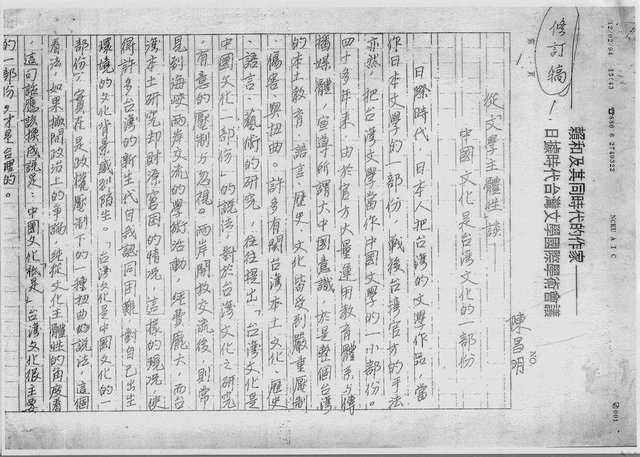 12/02 '94 15:43
☎886 6 2749322
NCKU A I C
☎001
賴和及其同時代的作家
日據時代台灣文學國際學術會議
NO.
修訂稿!
第 1 頁
從文學主體性談
中國文化是台灣文化的一部份
陳昌明
日際時代,日本人把台灣的文學作品,當
作日本文學的一部份,戰後台灣官方的手法
亦然,把台灣文學當作中國文學的一小部份。
四十多年來,由於官方大量運用教育體系與傳
播媒體,宣導所謂大中國意識,於是整個台灣
的本土教育、語言、歷史、文化,皆受到嚴重壓制
、傷害與扭曲。許多有關台灣本土文化、歷史
、語言、藝術的研究,往往提出「台灣文化是
中國文化一部份」的說法,對於台灣文化之研究
,有意的壓制與忽視。兩岸開放交流後,則常
見到海峽兩岸交流的學術活動,經費龐大,而台
灣本土研究却財源窘困的情況,這樣的現況,使
得許多台灣的新生代自我認同困難,對自己出生
環境的文化背景感到陌生。「台灣文化是中國文化的一
部份」,實在是政權壓制下的一種扭曲的說法,這個
看法,如果撇開政治上的爭論,純從文化主體性的角度看
,這句話應該換成說是:「中國文化祇是」台灣文化很主要
的一部份。才是合理的。